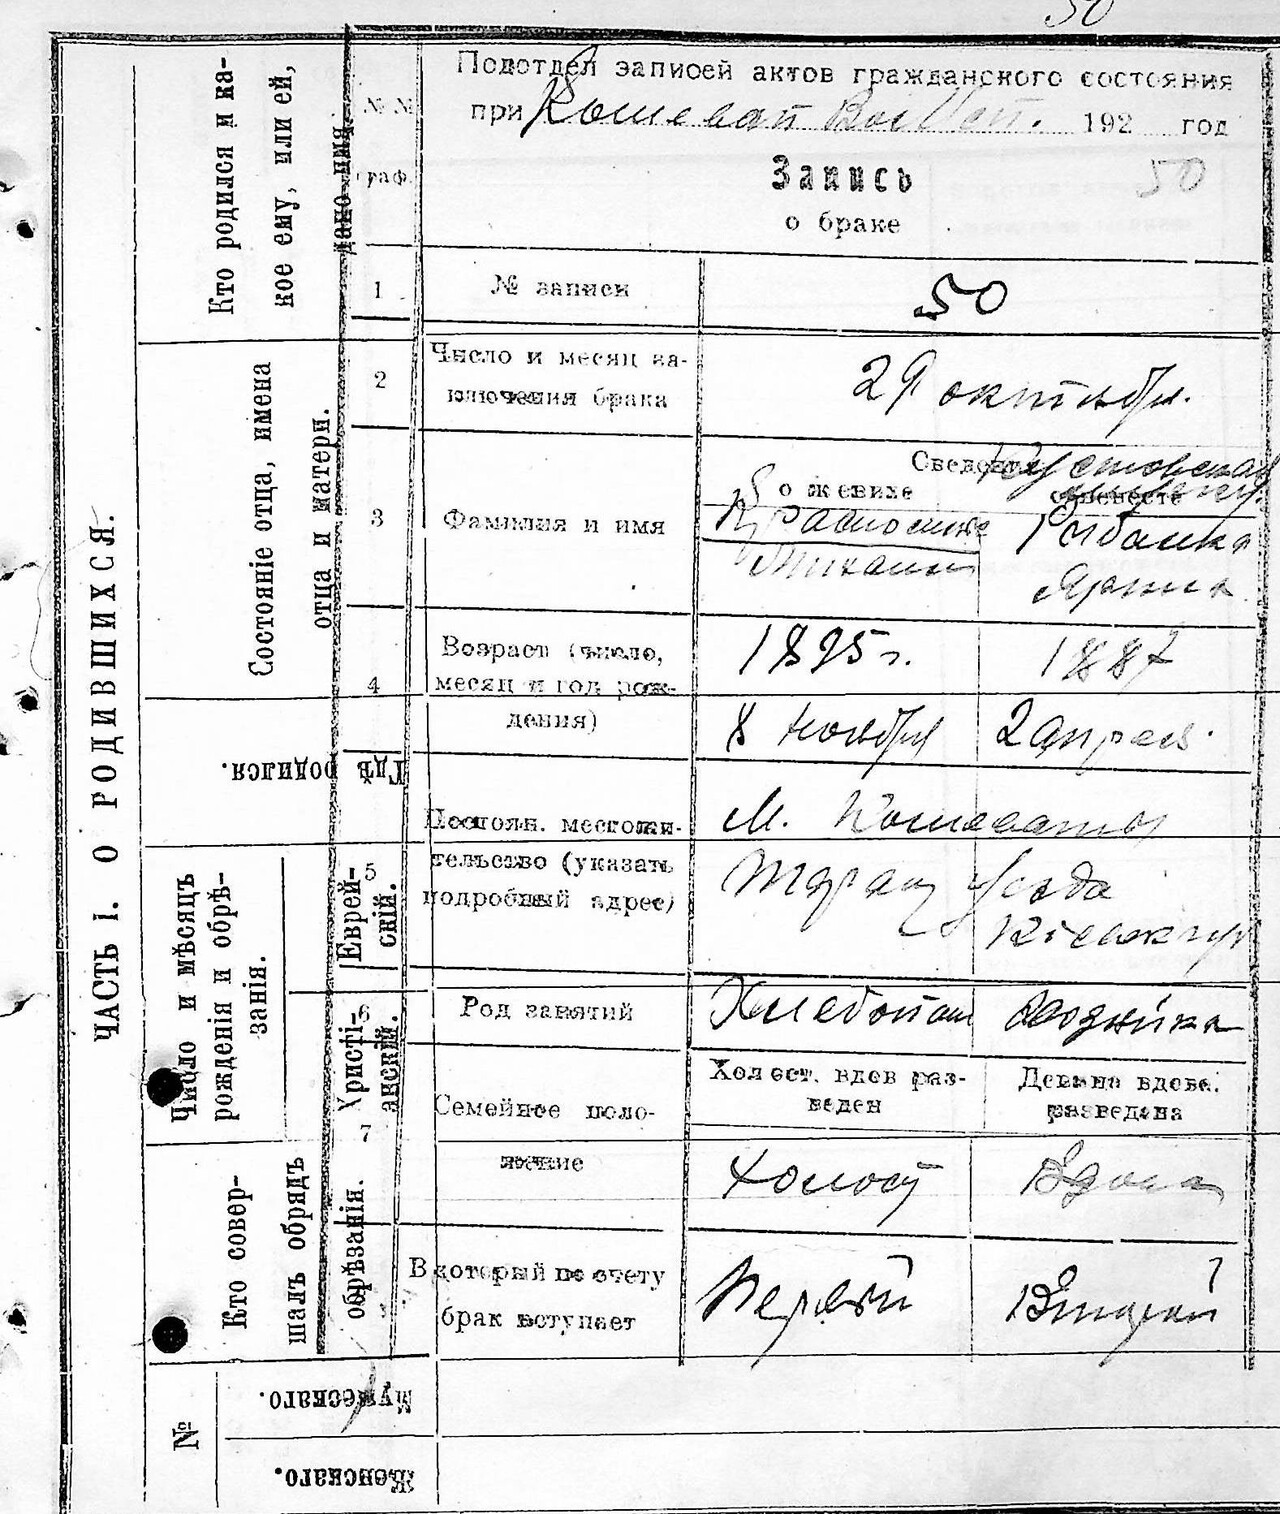 50
Подотдел записей актов гражданского состояния
при Кошеват Вол 192 год
Запись
50
о браке
№ №
граф.
1
№ записи
50
2
Число и месяц за-
ключения брака
29 октября.
3
Фамилия и имя
Сведения
о женихе
о невесте
Рыбалка
Михаил
4
Возраст (число,
месяц и год рож-
дения)
1895 г.
8 ноября
1887
2 апреля.
5
Постоян. местожи-
тельство (указать
подробный адрес)
М. Кошеватой
Таращ уезда
Кіевской
6
Род занятий
Хлебопаш
7
Семейное поло-
жение
Холост. вдов раз-
веден
Девица вдова.
разведена
Холост
Вдова
8
В который по счету
брак вступает
Первый
Второй
ЧАСТЬ I. О РОДИВШИХСЯ.
Кто родился и ка-
кое ему, или ей,
дано имя.
Состояніе отца, имена
отца и матери.
Гдѣ родился.
Число и мѣсяцъ
рожденія и обрѣ-
занія.
Еврей-
скій.
Христі-
анскій.
Кто совер-
шалъ обрядъ
обрѣзанія.
№
Мужескаго.
Женскаго.